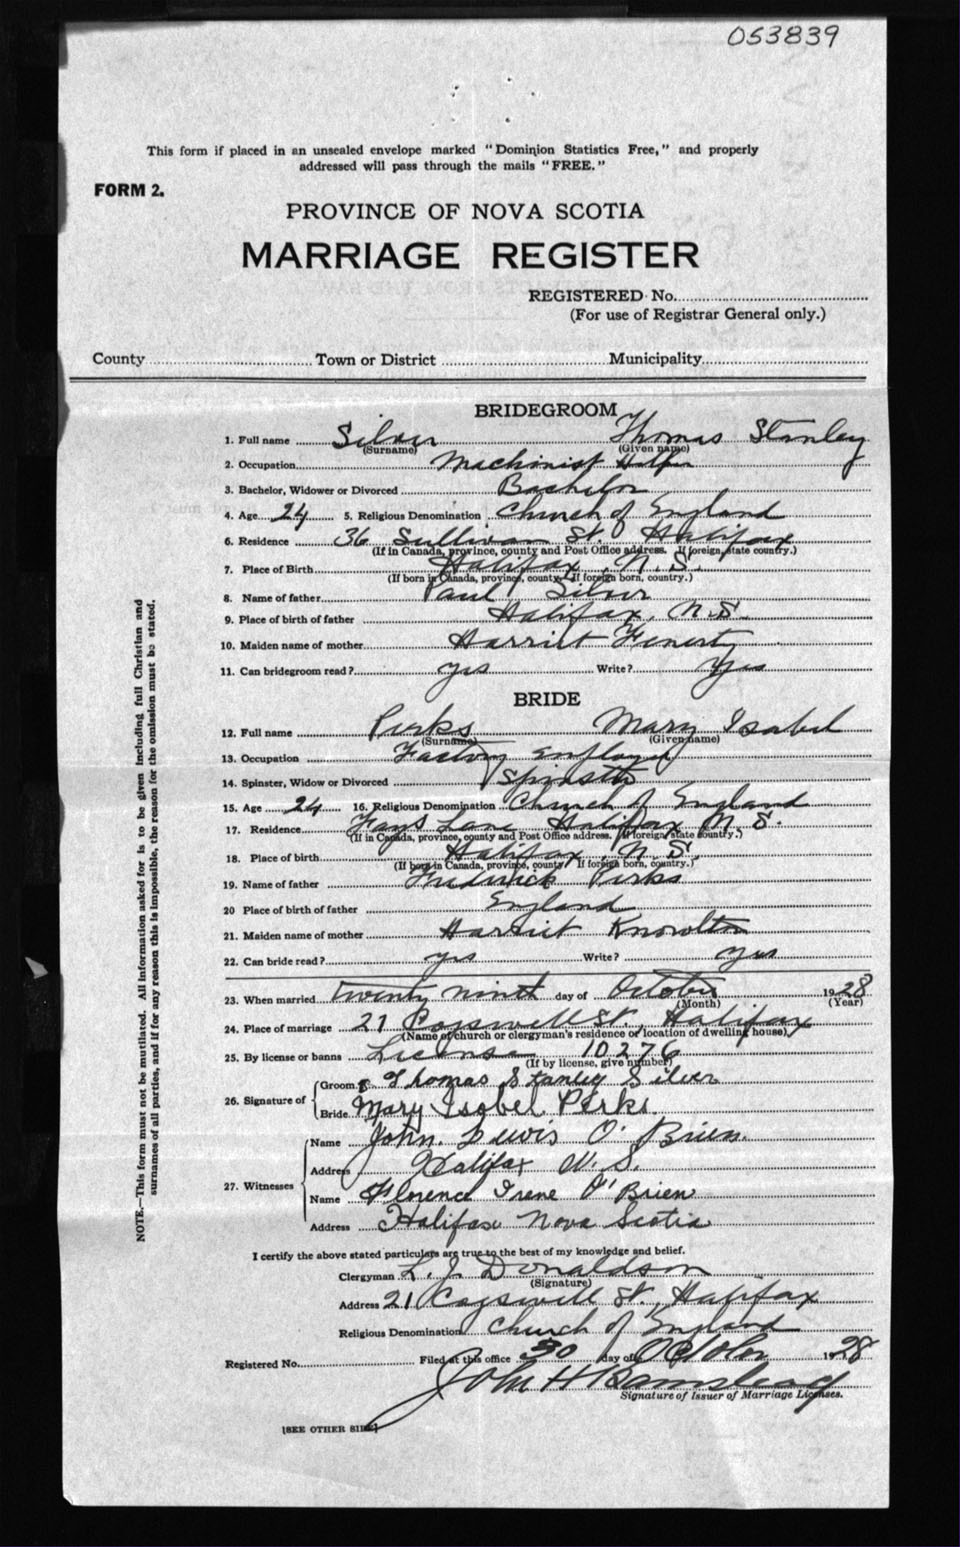 053839
This form if placed in an unsealed envelope marked "Dominion Statistics Free," and properly
addressed will pass through the mails "FREE."
FORM 2.
PROVINCE OF NOVA SCOTIA
MARRIAGE REGISTER
REGISTERED No.
(For use of Registrar General only.)
County Town or District Municipality
BRIDEGROOM
1. Full name Silver Thomas Stanley
(Surname) (Given name)
2. Occupation Machinist Helper
3. Bachelor, Widower or Divorced Bachelor
4. Age 24 5. Religious Denomination Church of England
6. Residence 36 Sullivan St. Halifax
(If in Canada, province, county and Post Office address. If foreign, state country.)
7. Place of Birth Halifax, N.S.
(If born in Canada, province, county. If foreign born, country.)
8. Name of father Paul Silver
9. Place of birth of father Halifax, N.S.
10. Maiden name of mother Harriet Fenerty
11. Can bridegroom read? yes Write? Yes
BRIDE
12. Full name Perks Mary Isabel
(Surname) (Given name)
13. Occupation Factory Employee
14. Spinster, Widow or Divorced Spinster
15. Age 24 16. Religious Denomination Church of England
17. Residence Fays Lane Halifax N.S.
(If in Canada, province, county and Post Office address. If foreign, state country.)
18. Place of birth Halifax, N.S.
(If born in Canada, province, county. If foreign born, country.)
19. Name of father Fredrick Perks
20 Place of birth of father England
21. Maiden name of mother Harriet Knowlton
22. Can bride read? yes Write? yes
23. When married Twenty ninth day of October 1928
(Month) (Year)
24. Place of marriage 21 Cogswell St., Halifax
(Name of church or clergyman's residence or location of dwelling house)
25. By license or banns License 10276
(If by license, give number)
26. Signature of Groom Thomas Stanley Silver
Bride Mary Isobel Perks.
27. Witnesses Name John Lewis O'Brien.
Address Halifax N.S.
Name Florence Irene O'Brien
Address Halifax Nova Scotia
I certify the above stated particulars are true to the best of my knowledge and belief.
Clergyman L. J. Donaldson
(Signature)
Address 21 Cogswell St., Halifax
Religious Denomination Church of England
Registered No. Filed at this office 30 day of October 1928
John H
Signature of Issuer of Marriage Licenses.
[SEE OTHER SIDE]
NOTE.—This form must not be mutilated. All information asked for is to be given including full Christian and
surnames of all parties, and if for any reason this is impossible, the reason for the omission must be stated.